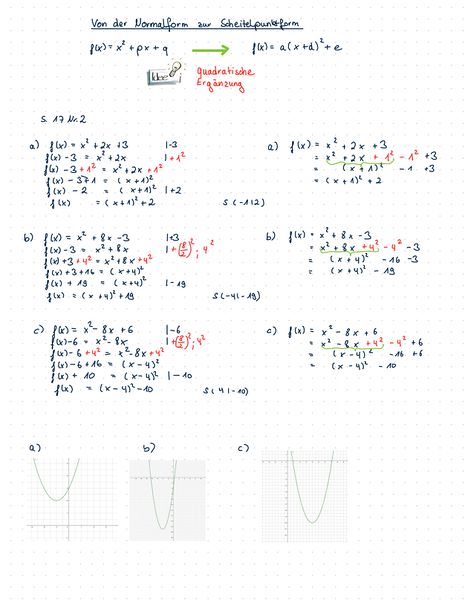 Von der Normalform zur Scheitelpunktform
f(x) = x² + px + q → f(x) = a(x+d)² + e
Idee! quadratische
Ergänzung
S. 17 Nr. 2
a) f(x) = x² + 2x + 3 |-3
f(x) - 3 = x² + 2x |+1²
f(x) - 3 + 1² = x² + 2x + 1²
f(x) - 3 + 1 = (x+1)²
f(x) - 2 = (x+1)² |+2
f(x) = (x+1)² + 2 S(-1|2)
a) f(x) = x² + 2x + 3
= x² + 2x + 1² - 1² + 3
= (x+1)² - 1 + 3
= (x+1)² + 2
b) f(x) = x² + 8x - 3 |+3
f(x) - 3 = x² + 8x |+(8/2)² ; 4²
f(x) + 3 + 4² = x² + 8x + 4²
f(x) + 3 + 16 = (x+4)²
f(x) + 19 = (x+4)² |-19
f(x) = (x+4)² + 19 S(-4|-19)
b) f(x) = x² + 8x - 3
= x² + 8x + 4² - 4² - 3
= (x+4)² - 16 - 3
= (x+4)² - 19
c) f(x) = x² - 8x + 6 |-6
f(x) - 6 = x² - 8x |+(8/2)² ; 4²
f(x) - 6 + 4² = x² - 8x + 4²
f(x) - 6 + 16 = (x-4)²
f(x) + 10 = (x-4)² |-10
f(x) = (x-4)² - 10 S(4|-10)
c) f(x) = x² - 8x + 6
= x² - 8x + 4² - 4² + 6
= (x-4)² - 16 + 6
= (x-4)² - 10
a) b) c)